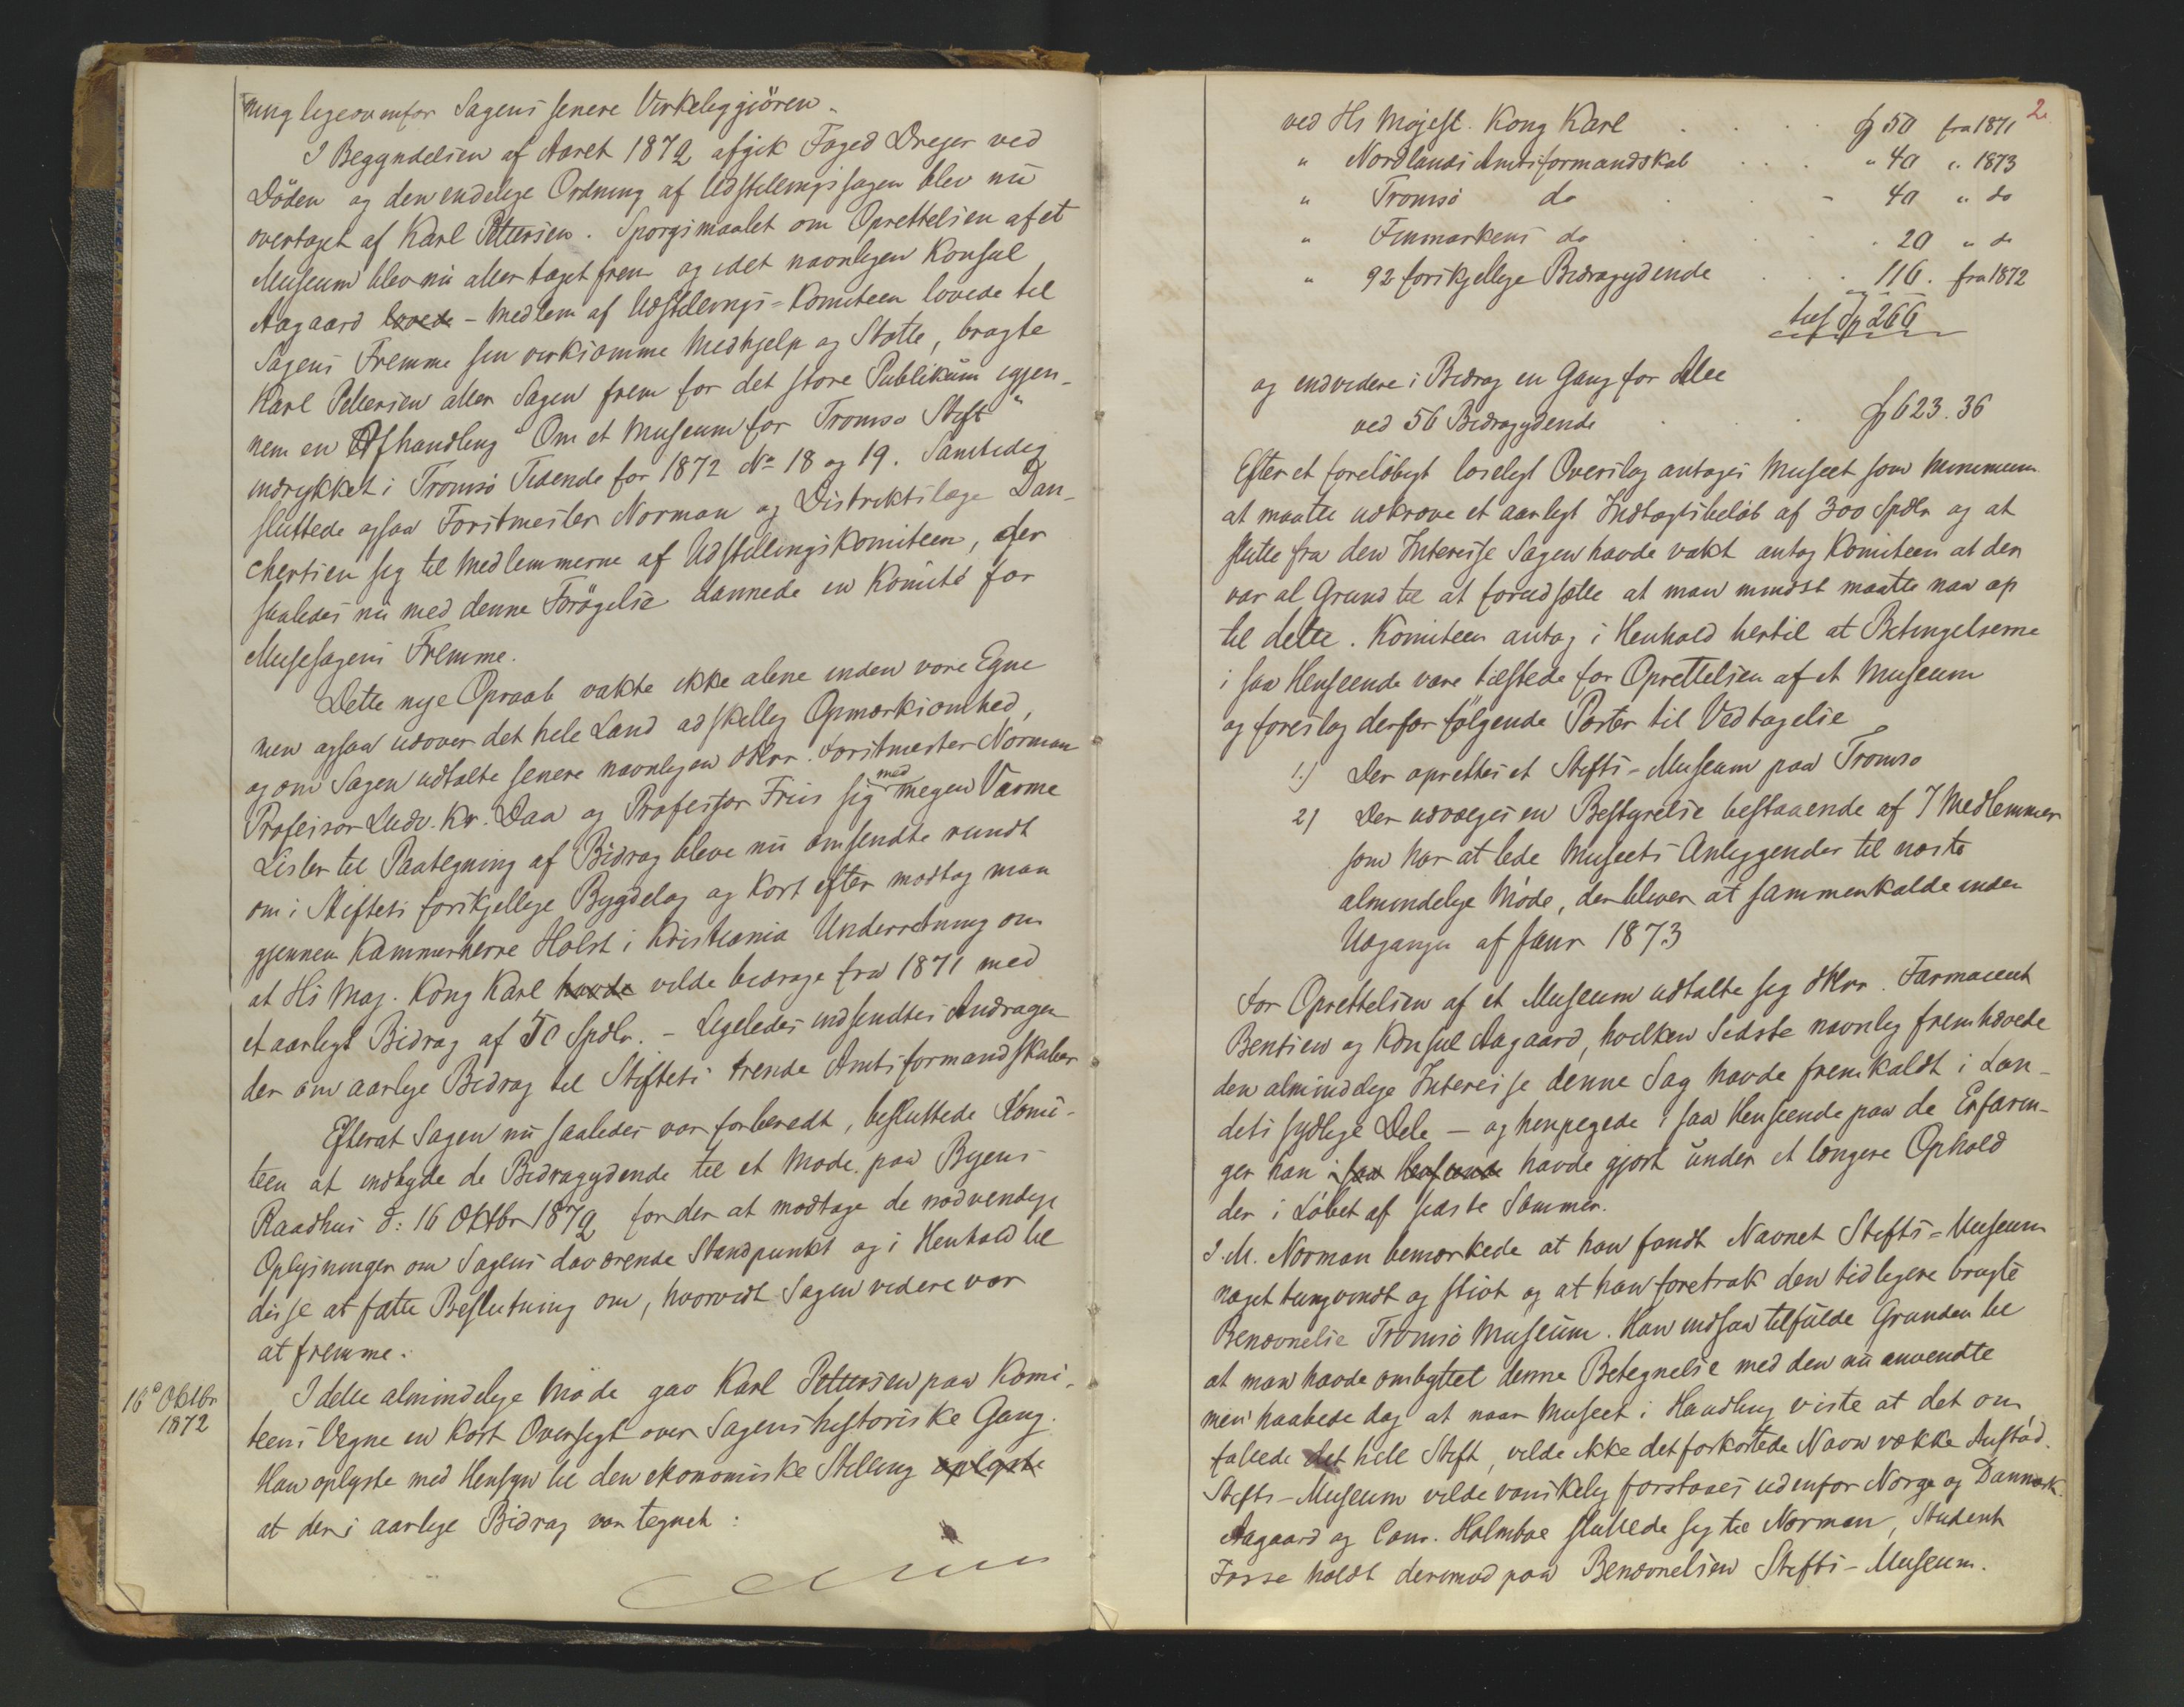 ning ligeoverfor Sagens senere Virkeliggjören.
I Begyndelsen af Aaret 1872 afgik Foged Dreyer ved
Döden og den endelige Ordning af Udstillingssagen blev nu
overtaget af Karl Pettersen. Sporgsmaalet om Oprettelsen af et
Museum blev nu atter taget frem og idet navnligen Konsul
Aagaard lovede - Medlem af Udstillings-Komiteen lovede til
Sagens Fremme sin virksomme Medhjelp og Støtte, bragte
Karl Pettersen atter Sagen frem for det store Publikum igjen-
nem en Afhandling "Om et Museum for Tromsø Stift"
indrykket i Tromsø Tidende for 1872 No 18 og 19. Samtidig
sluttede ogsaa Forstmester Norman og Distriktslæge Dan-
chertsen sig til Medlemmerne af Udstillingskomiteen, der
saaledes nu med denne Forögelse dannede en Komité for
Musesagens Fremme.
Dette nye Opraab vakte ikke alene inden vore Egne
men ogsaa udover det hele Land adskillig Opmærksomhed,
og om Sagen udtalte senere navnligen DHrr. Forstmester Norman
Professor Ludv. Kr. Daa og Professor Friis sig med megen Varme
Lister til Paategning af Bidrag bleve nu omsendte rundt
om i Stiftets forskjellige Bygdelag og kort efter modtog man
gjennem Kammerherre Holst i Kristiania Underretning om
at Hs Maj. Kong Karl havde vilde bidrage fra 1871 med
et aarligt Bidrag af 50 Spdlr. - Ligeledes indsendtes Andragen
der om aarlige Bidrag til Stiftets trende Amtsformandskaber
Efterat Sagen nu saaledes var forberedt, besluttede Komi-
teen at indbyde de Bidragydende til et Møde paa Byens
Raadhus d: 16 Oktbr 1872 for der at modtage de nødvendige
Oplysninger om Sagens daværende Standpunkt og i Henhold til
disse at fatte Beslutning om, hvorvidt Sagen videre var
at fremme.
16de Oktbr
1872
I dette almindelige Møde gav Karl Pettersen paa Komi-
teens Vegne en kort Oversigt over Sagens historiske Gang.
Han oplyste med Hensyn til den ekonomiske Stilling oplyste
at der i aarlige Bidrag var tegnet:
2.
ved Hs Majest. Kong Karl . . . . Sp 50 fra 1871
" Nordlands Amtsformandskab . . . " 40 " 1873
" Tromsø do . . - 40 " do
" Finmarkens do . . . . 20 " do
" 92 forskjellige Bidragydende . . . 116. fra 1872
tils Sp 266
og endvidere i Bidrag en Gang for Alle
ved 56 Bidragydende . . . Sp 623. 36
Efter et foreløbigt løseligt Overslag antages Museet som Minimum
at maatte udkræve et aarligt Indtægtsbeløb af 300 Spdlr og at
slutte fra den Interesse Sagen havde vakt antog Komiteen at der
var al Grund til at forudsætte at man mindst maatte naa op
til dette. Komiteen antog i Henhold hertil at Betingelserne
i saa Henseende være tilstede for Oprettelsen af et Museum
og foreslog derfor følgende Poster til Vedtagelse
1.) Der oprettes et Stifts-Museum paa Tromsø
2) Der udvælges en Bestyrelse bestaaende af 7 Medlemmer
som har at lede Museets Anliggender til næste
almindelige Møde, der bliver at sammenkalde inden
Udgangen af Janr 1873
For Oprettelsen af et Museum udtalte sig DHrr. Farmaceut
Bentsen og Konsul Aagaard, hvilken Sidste navnlig fremhævede
den almindelige Interesse denne Sag havde fremkaldt i Lan-
dets sydlige Dele - og henpegede i saa Henseende paa de Erfarin-
ger han i saa Henseende havde gjort under et længere Ophold
der i Løbet af sidste Sommer.
J. M. Norman bemærkede at han fandt Navnet Stifts-Museum
noget tungvindt og stivt og at han foretrak den tidligere brugte
Benævnelse Tromsø Museum. Han indsaa tilfulde Grunden til
at man havde ombyttet denne Betegnelse med den nu anvendte
men haabede dog at naar Museet i Handling viste at det om
fattede det hele Stift, vilde ikke det forkortede Navn vække Anstød.
Stifts-Museum vilde vanskelig forstaaes udenfor Norge og Danmark.
Aagaard og Cons. Holmboe sluttede sig til Norman, Student
Fosse holdt derimod paa Benævnelsen Stifts-Museum.